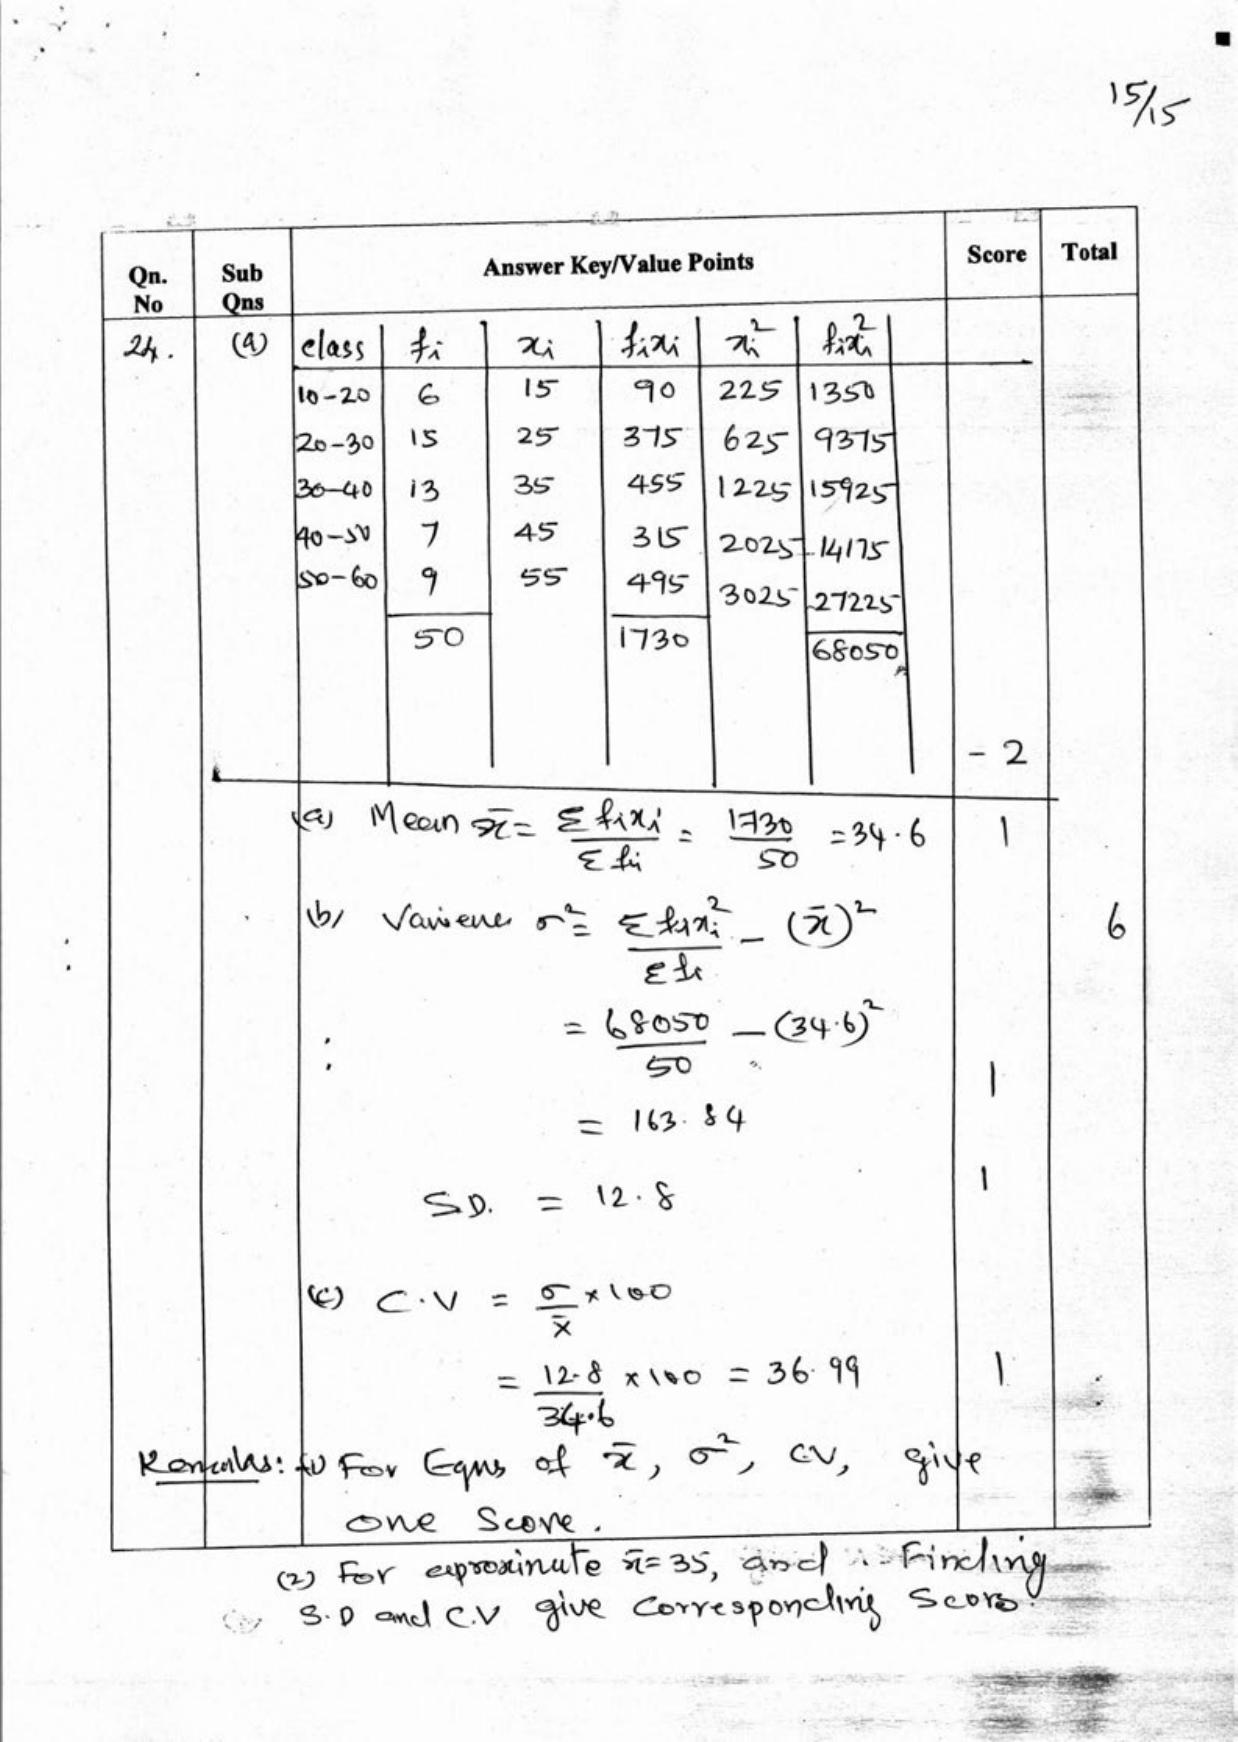 15/15
Qn. No Sub Qns Answer Key/Value Points Score Total
24. (a) class fi xi fixi xi² fixi²
10-20 6 15 90 225 1350
20-30 15 25 375 625 9375
30-40 13 35 455 1225 15925
40-50 7 45 315 2025 14175
50-60 9 55 495 3025 27225
50 1730 68050
- 2
(a) Mean x̄ = Σfixi / Σfi = 1730/50 = 34.6 1
(b) Varience σ² = Σfixi² / Σfi - (x̄)² 6
= 68050/50 - (34.6)²
1
= 163.84
S.D. = 12.8 1
(c) C.V = σ/x̄ × 100
= 12.8/34.6 × 100 = 36.99 1
Remarks: (1) For Eqns of x̄, σ², CV, give
one Score.
(2) For approximate x̄=35, and Finding
S.D and C.V give corresponding Score.